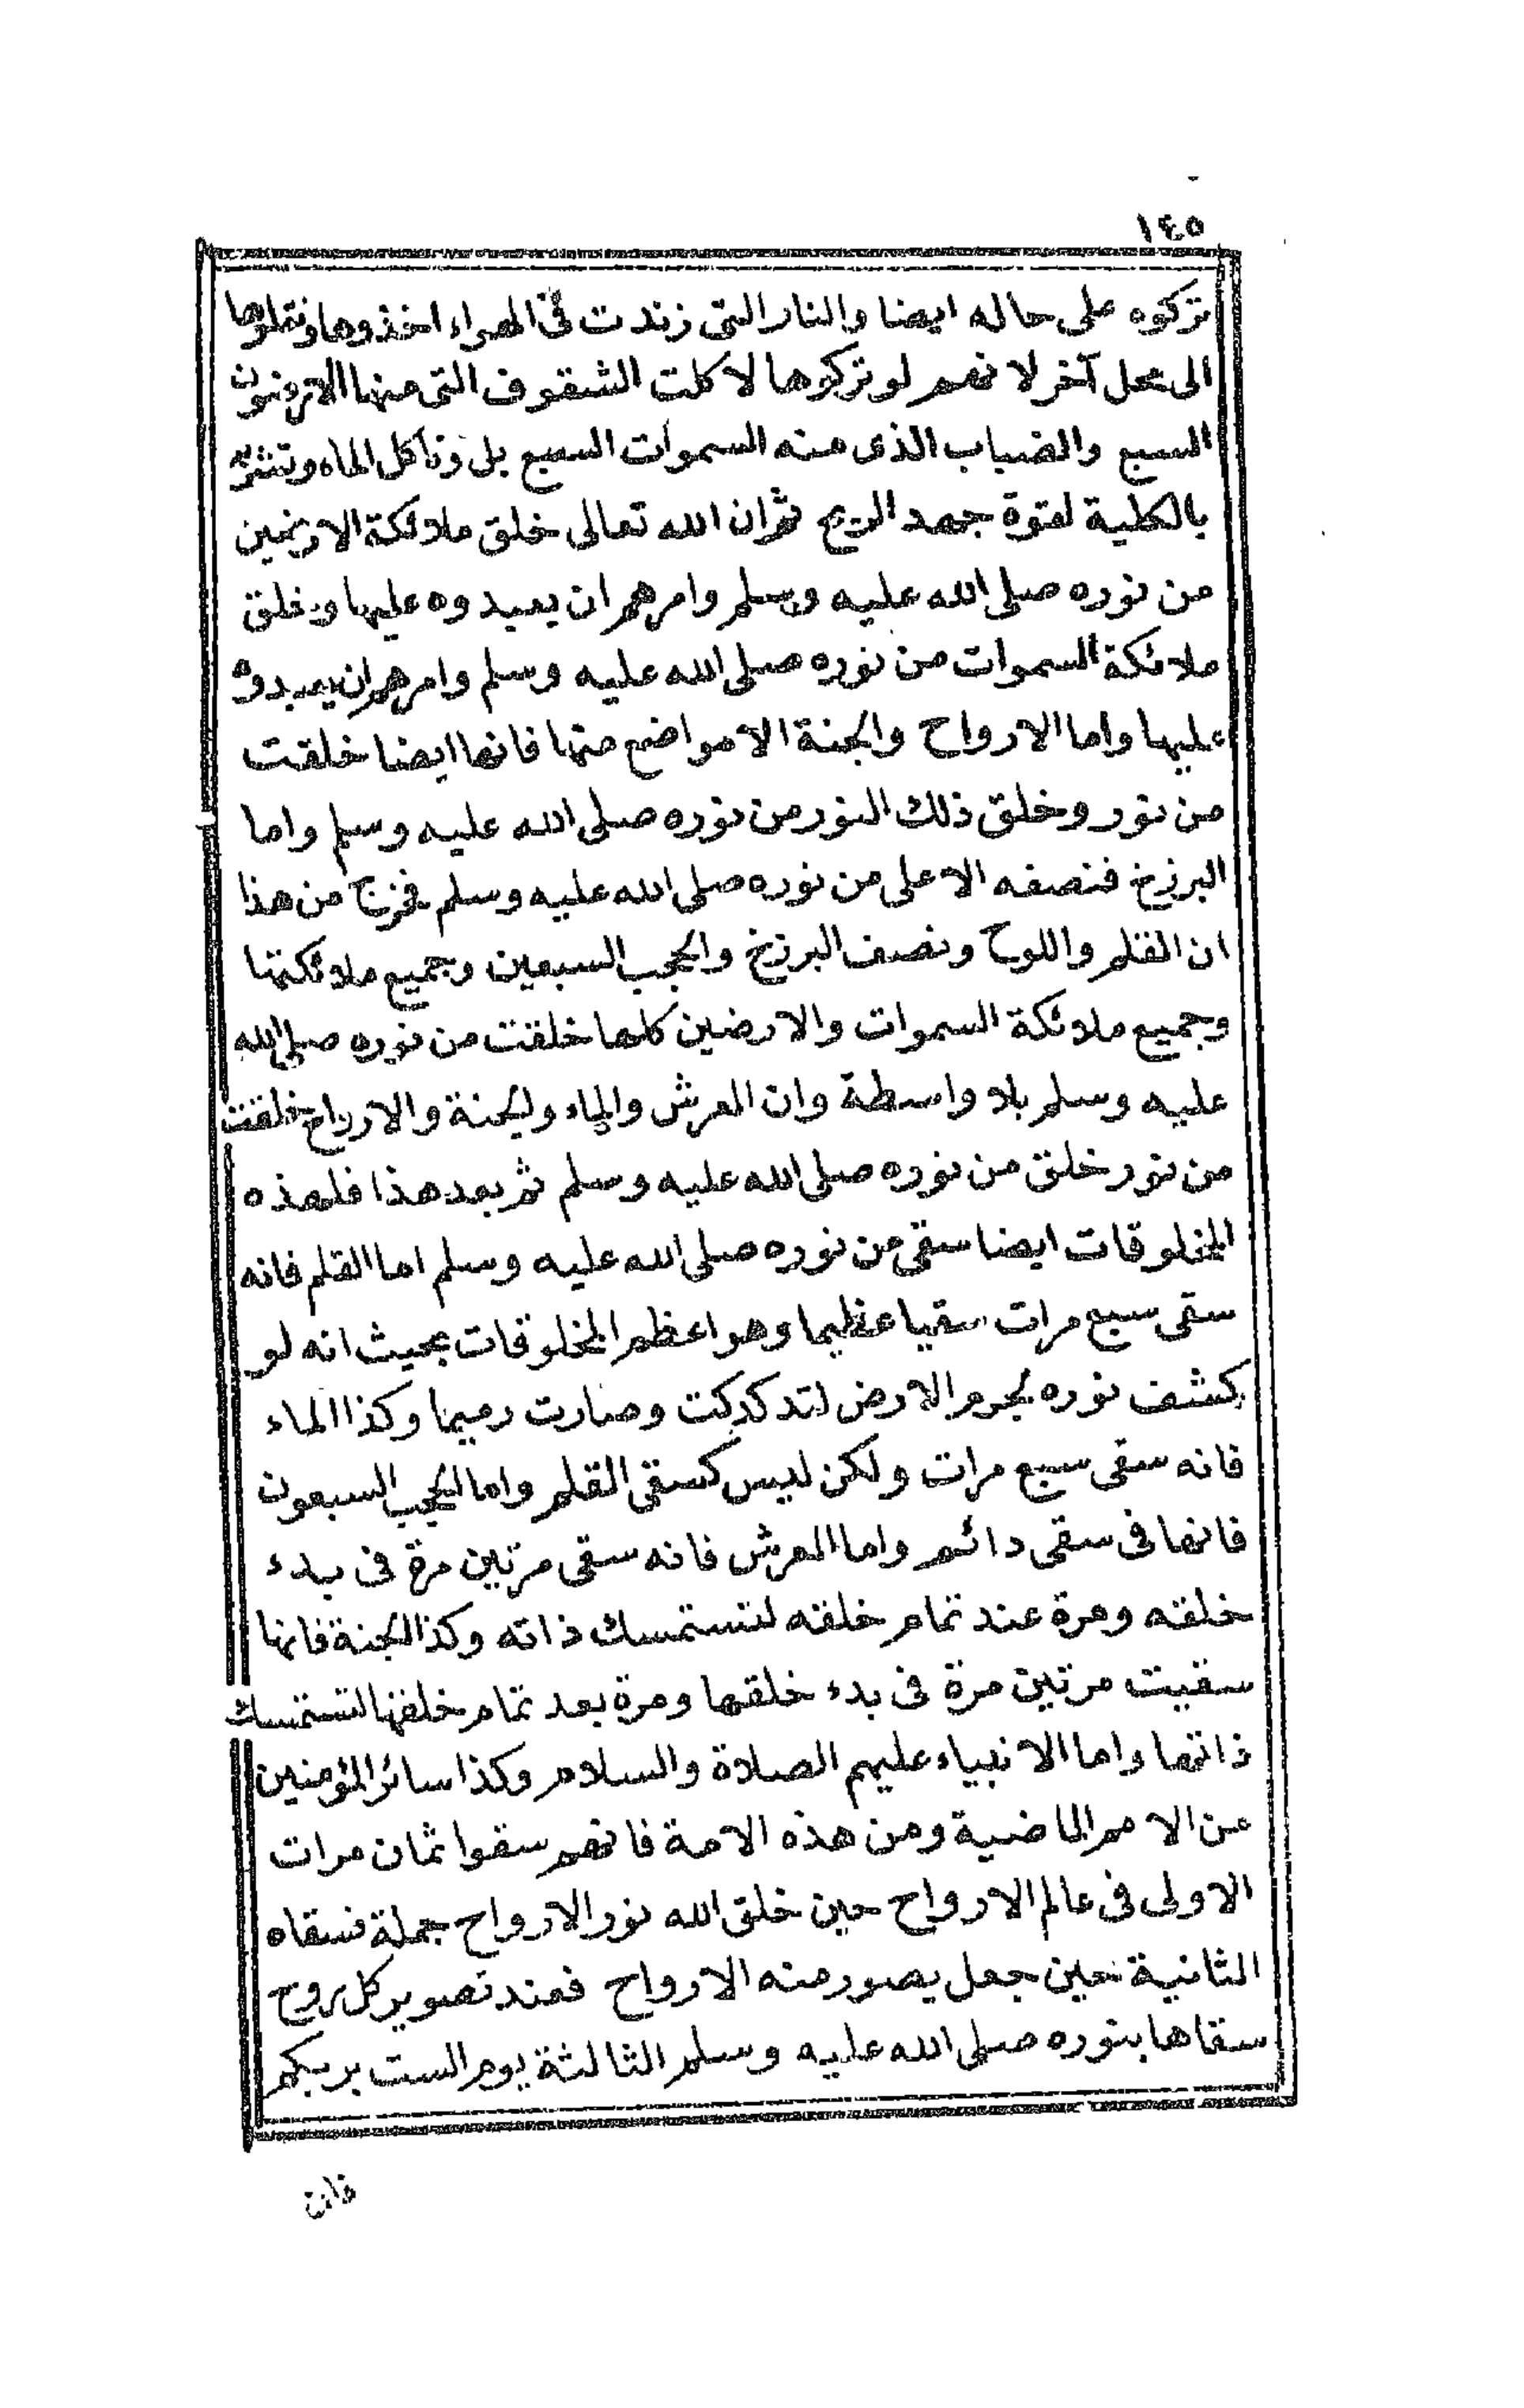 ١٤٥
تركوه على حاله ايضا والنار التى زندت فى الهواء اخذوها ونقلوها
الى محل آخر لا نهم لو تركوها لا كلت الشقوف التى منها الارضون
السبع والضباب الذى منه السموات السبع بل وتاكل الماء وتشربه
بالكلية لقوة جهد الريح ثم ان الله تعالى خلق ملائكة الارضين
من نوره صلى الله عليه وسلم وامرهم ان يعبدوه عليها وخلق
ملائكة السموات من نوره صلى الله عليه وسلم وامرهم ان يعبدوه
عليها واما الارواح والجنة الا مواضع منها فانها ايضا خلقت
من نور وخلق ذلك النور من نوره صلى الله عليه وسلم واما
البرزخ فنصفه الاعلى من نوره صلى الله عليه وسلم فخرج من هذا
ان القلم واللوح ونصف البرزخ والحجب السبعين وجميع ملائكتها
وجميع ملائكة السموات والارضين كلها خلقت من نوره صلى الله
عليه وسلم بلا واسطة وان العرش والماء والجنة والارواح خلقت
من نور خلق من نوره صلى الله عليه وسلم ثم بعد هذا فلهذه
المخلوقات ايضا سقى من نوره صلى الله عليه وسلم اما القلم فانه
سقى سبع مرات سقيا عظيما وهو اعظم المخلوقات بحيث انه لو
كشف نوره لجرم الارض لتدكدكت وصارت رميما وكذا الماء
فانه سقى سبع مرات ولكن ليس كسقى القلم واما الحجب السبعون
فانها فى سقى دائم واما العرش فانه سقى مرتين مرة فى بدء
خلقه ومرة عند تمام خلقه لتستمسك ذاته وكذا الجنة فانها
سقيت مرتين مرة فى بدء خلقها ومرة بعد تمام خلقها لتستمسك
ذاتها واما الانبياء عليهم الصلاة والسلام وكذا سائر المؤمنين
من الامم الماضية ومن هذه الامة فانهم سقوا ثمان مرات
الاولى فى عالم الارواح حين خلق الله نور الارواح جملة فسقاه
الثانية حين جعل يصور منه الارواح فعند تصوير كل روح
سقاها بنوره صلى الله عليه وسلم الثالثة يوم الست بربكم
فان